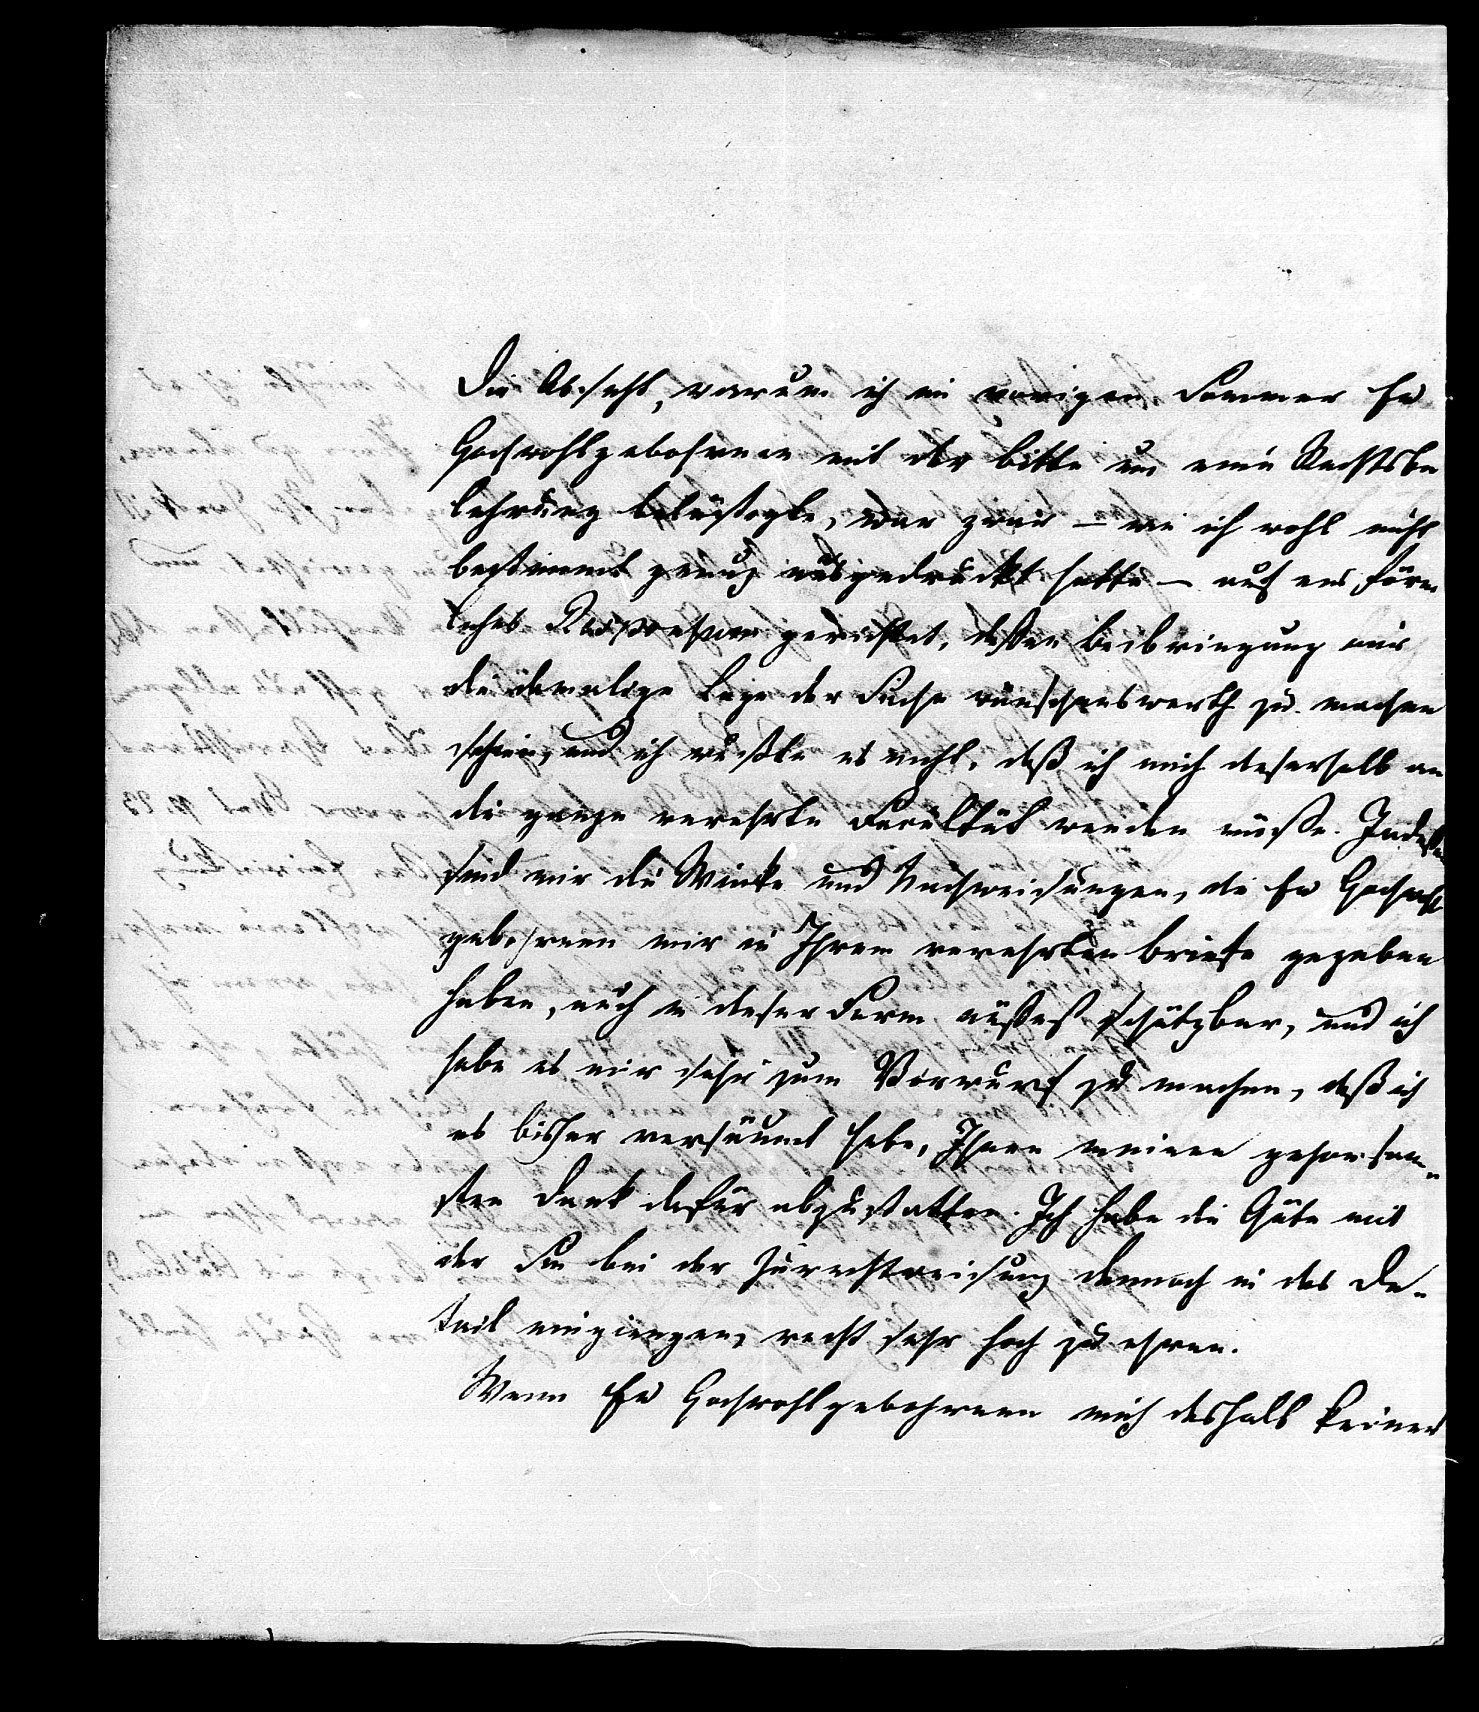 Die Absicht, warum ich im vorigen Sommer Ew
Hochwohlgebohrnen mit der Bitte um eine Rechtsbe
lehrung belästigte, war zwar – wie ich wohl nicht
bestimmt genug ausgedruckt hatte – auf ein förm
liches Responsum gerichtet, deßen Beibringung mir
die damalige Lage der Sache wünschenswerth zu machen
schien, und ich wußte es nicht, daß ich mich deserhalb an
die ganze verehrte Facultät wenden müße. Indeßen
sind mir die Winke und Nachweisungen, die Ew Hochwohl
gebohrnen mir in Ihrem verehrten Briefe gegeben
haben, auch in dieser Form äußerst schätzbar, und ich
habe es mir sehr zum Vorwurf zu machen, daß ich
es bisher versäumt habe, Ihnen meinen gehorsam-
sten Dank dafür abzustatten. Ich habe die Güte mit
der Sie bei der Zurechtweisung dennoch in das De-
tail eingiengen, recht sehr hoch zu ehren.
Wenn Ew Hochwohlgebohrnen mich deshalb keiner